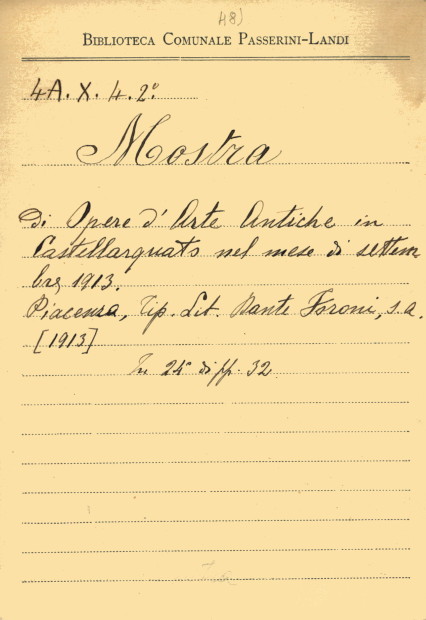 48)
BIBLIOTECA COMUNALE PASSERINI-LANDI
4A. X. 4. 2º
Mostra
di Opere d'Arte Antiche in
Castellarquato nel mese di settem
bre 1913.
Piacenza, Tip. Lit. Dante Foroni, s.a.
[1913]
In 24º di pp. 32